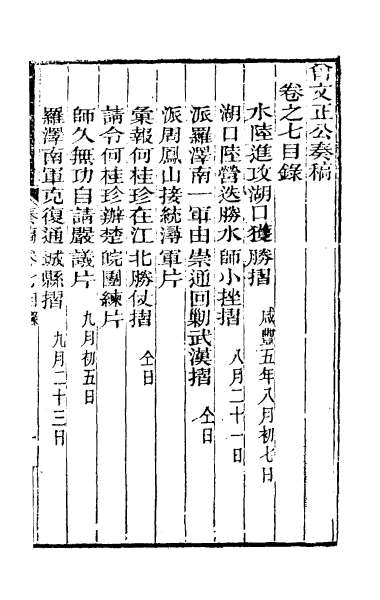 曾文正公奏稿
卷之七目錄
水陸進攻湖口獲勝摺 咸豐五年八月初七日
湖口陸營迭勝水師小挫摺 八月二十一日
派羅澤南一軍由崇通回剿武漢摺 仝日
派周鳳山接統潯軍片
彙報何桂珍在江北勝仗摺 仝日
請令何桂珍辦楚皖團練片
師久無功自請嚴議片 九月初五日
羅澤南軍克復通城縣摺 九月二十三日